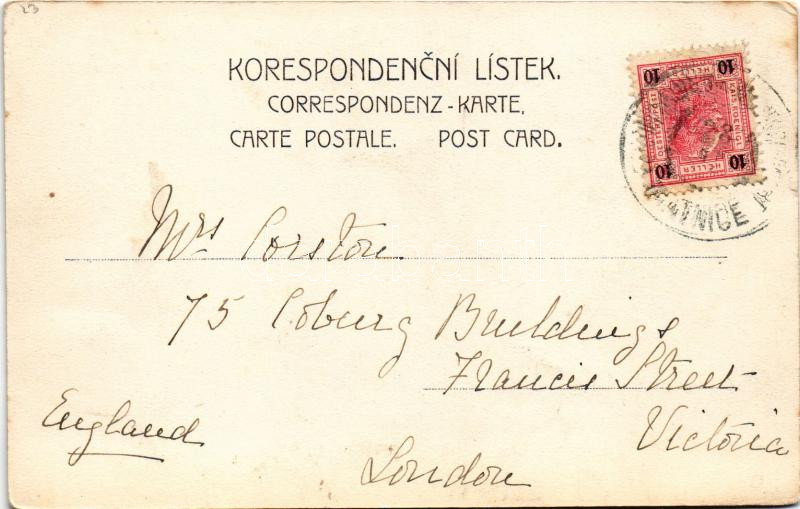 23
KORESPONDENČNÍ LÍSTEK.
CORRESPONDENZ-KARTE.
CARTE POSTALE. POST CARD.
10 HELLER 10
KAIS. KOENIGL.
10 HELLER 10
Mrs Corston
75 Coburg Buildings
Francis Street
Victoria
London
England